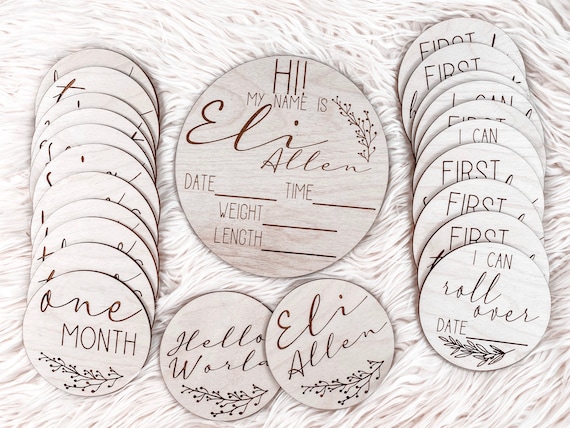 HI!
MY NAME IS
Eli
Allen
DATE TIME
WEIGHT
LENGTH
one
MONTH
Hello
World
Eli
Allen
FIRST
FIRST
I CAN
I CAN
FIRST
FIRST
FIRST
I CAN
roll
over
DATE